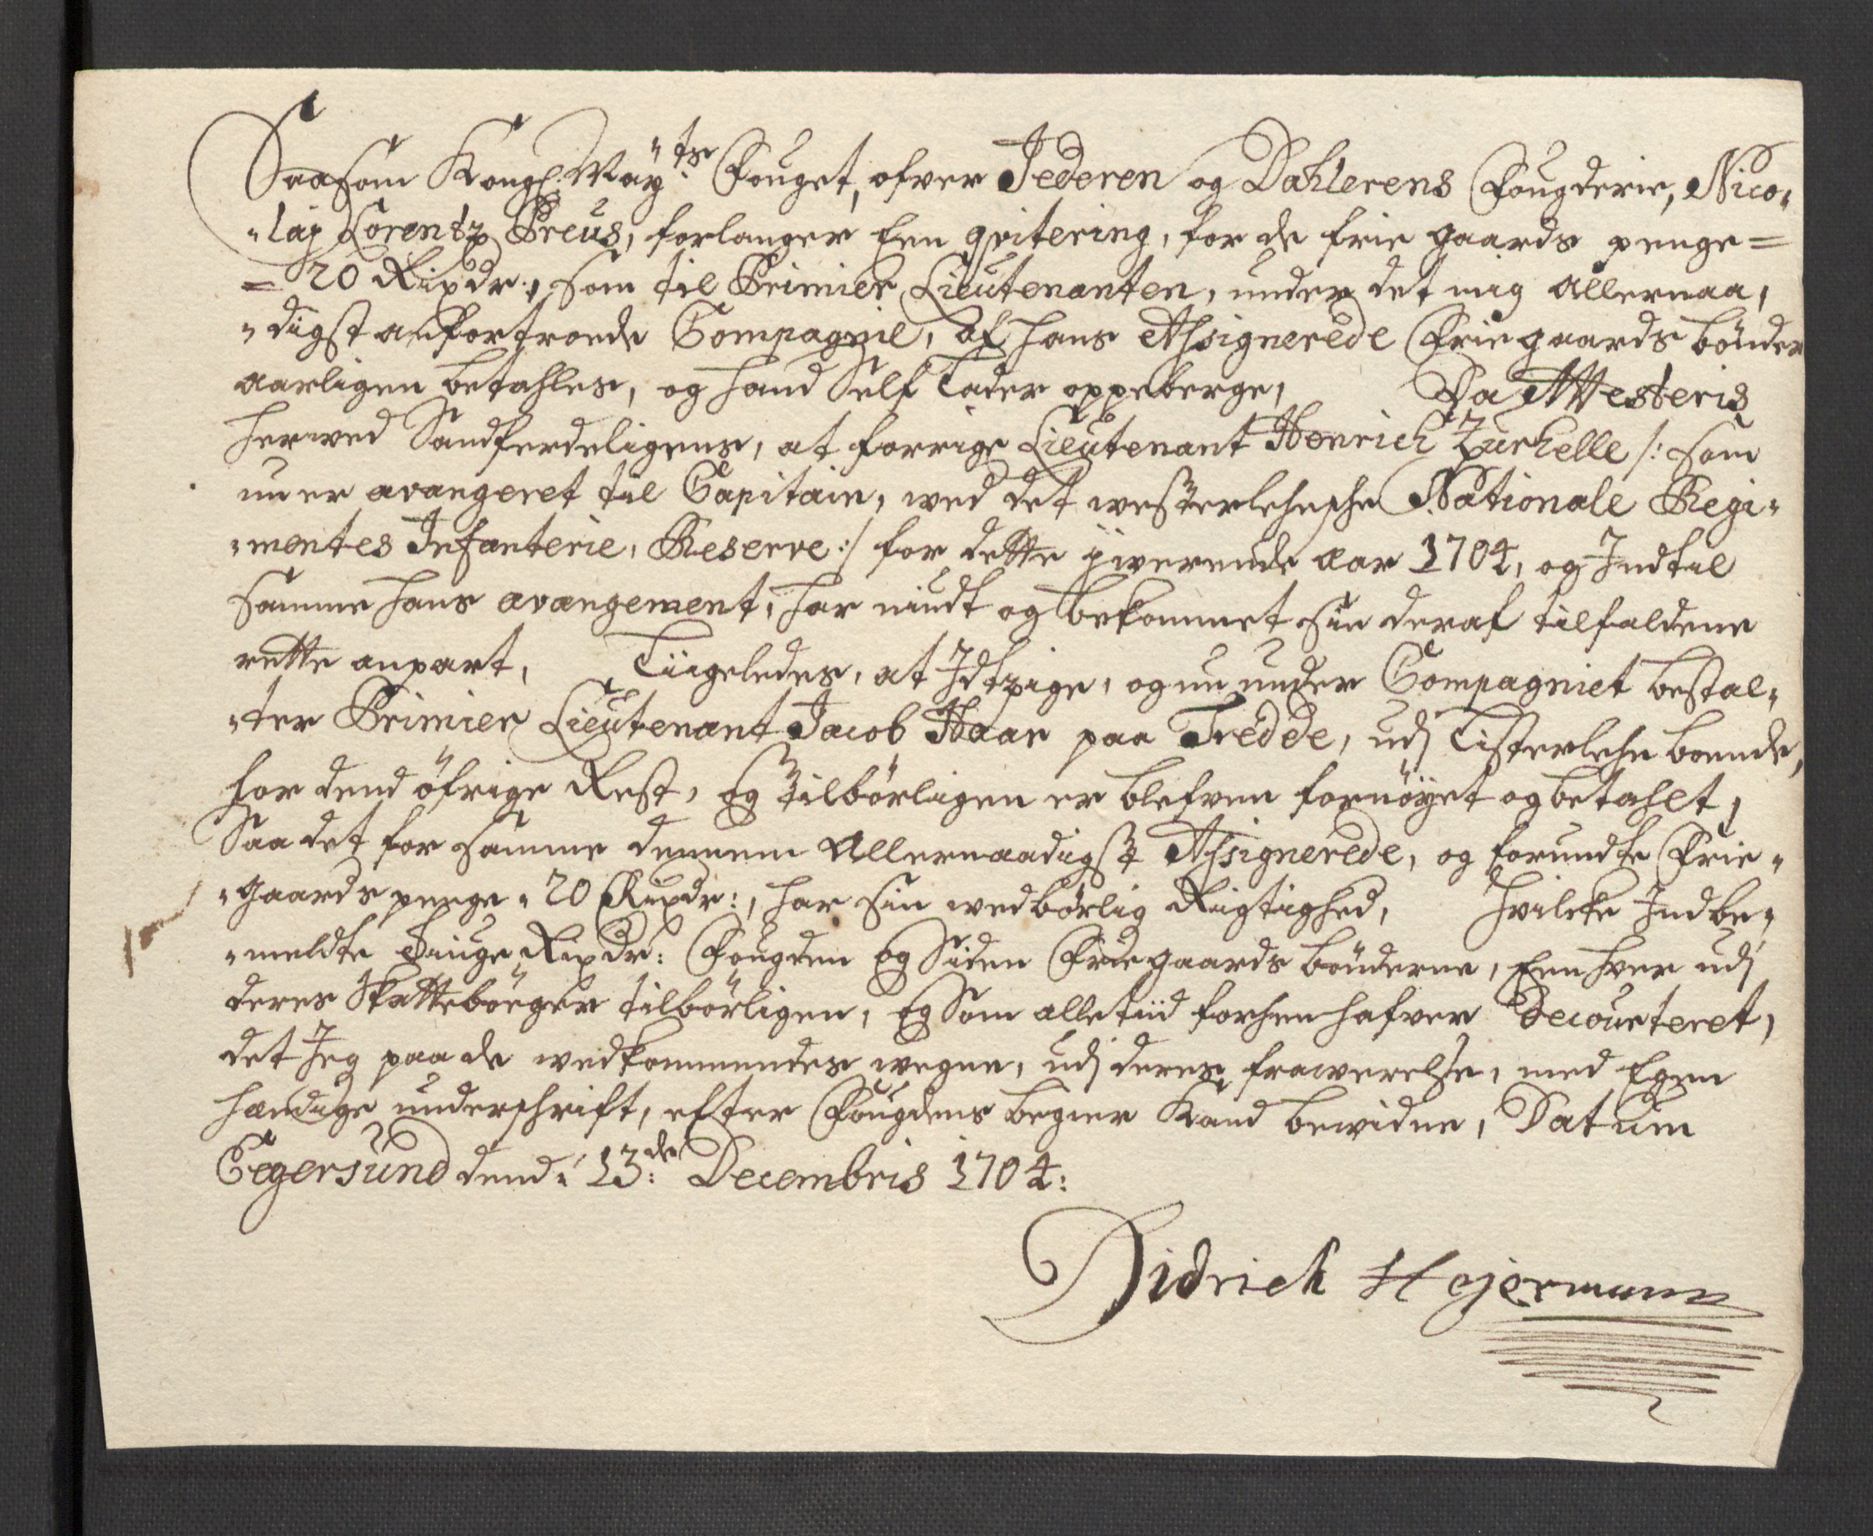 Saasom Kongl. Maÿts Fouget, ofver Jederen og Dahlerens Fougderie, Nico-
-laÿ Lorentz Preus, forlanger Een qvitering, for de frie gaards penge=
=20 Rixdr:, som til Primier Lieutenanten, under det mig allernaa,
-digst anfortroede Compagnie, af hans Assignerede Friegaards bönder
aarligen betahles, og hand Self Lader oppeberge, Da Attesteris
herved Sandferdeligens, at forrige Lieutenant Henrich Zurhelle /: som
nu er avangeret til Capitain, wed det westerlehnske Nationale Regi-
-mentes Infanterie, Reserve :/ for dette jwerende aar 1704, og Indtil
samme hans avangement, har niudt og bekommet sin deraf tilfaldene
rette anpart, Liigeledes, at Idtzige, og nu under Compagniet bestal-
-ter Primier Lieutenant Jacob Haar paa Tredde, udj Listerlehn boende,
for dend öfrige Rest, og tilbörligen er blefven fornöÿet og betahlt,
Saa det for samme dennem allernaadigst Assignerede, og forundte Frie-
-gaards penge - 20 Rixdr:, har sin wedbörlig Rigtighed, Hvilcke Indbe-
-meldte Tiuge Rixdr: Fougden og Siden Friegaards bönderne, Een hver udj
deres Skattebøeger tilbörligen, og Som alletiid forhen hafver Decourteret,
det Jeg paa de wedkommendes wegne, udj deres frawerelse, med Egen
hændige underschrift, efter Fougdens begier kand bewidne, Datum
Egersund dend: 13de: Decembris 1704:
Didrich Hejermann